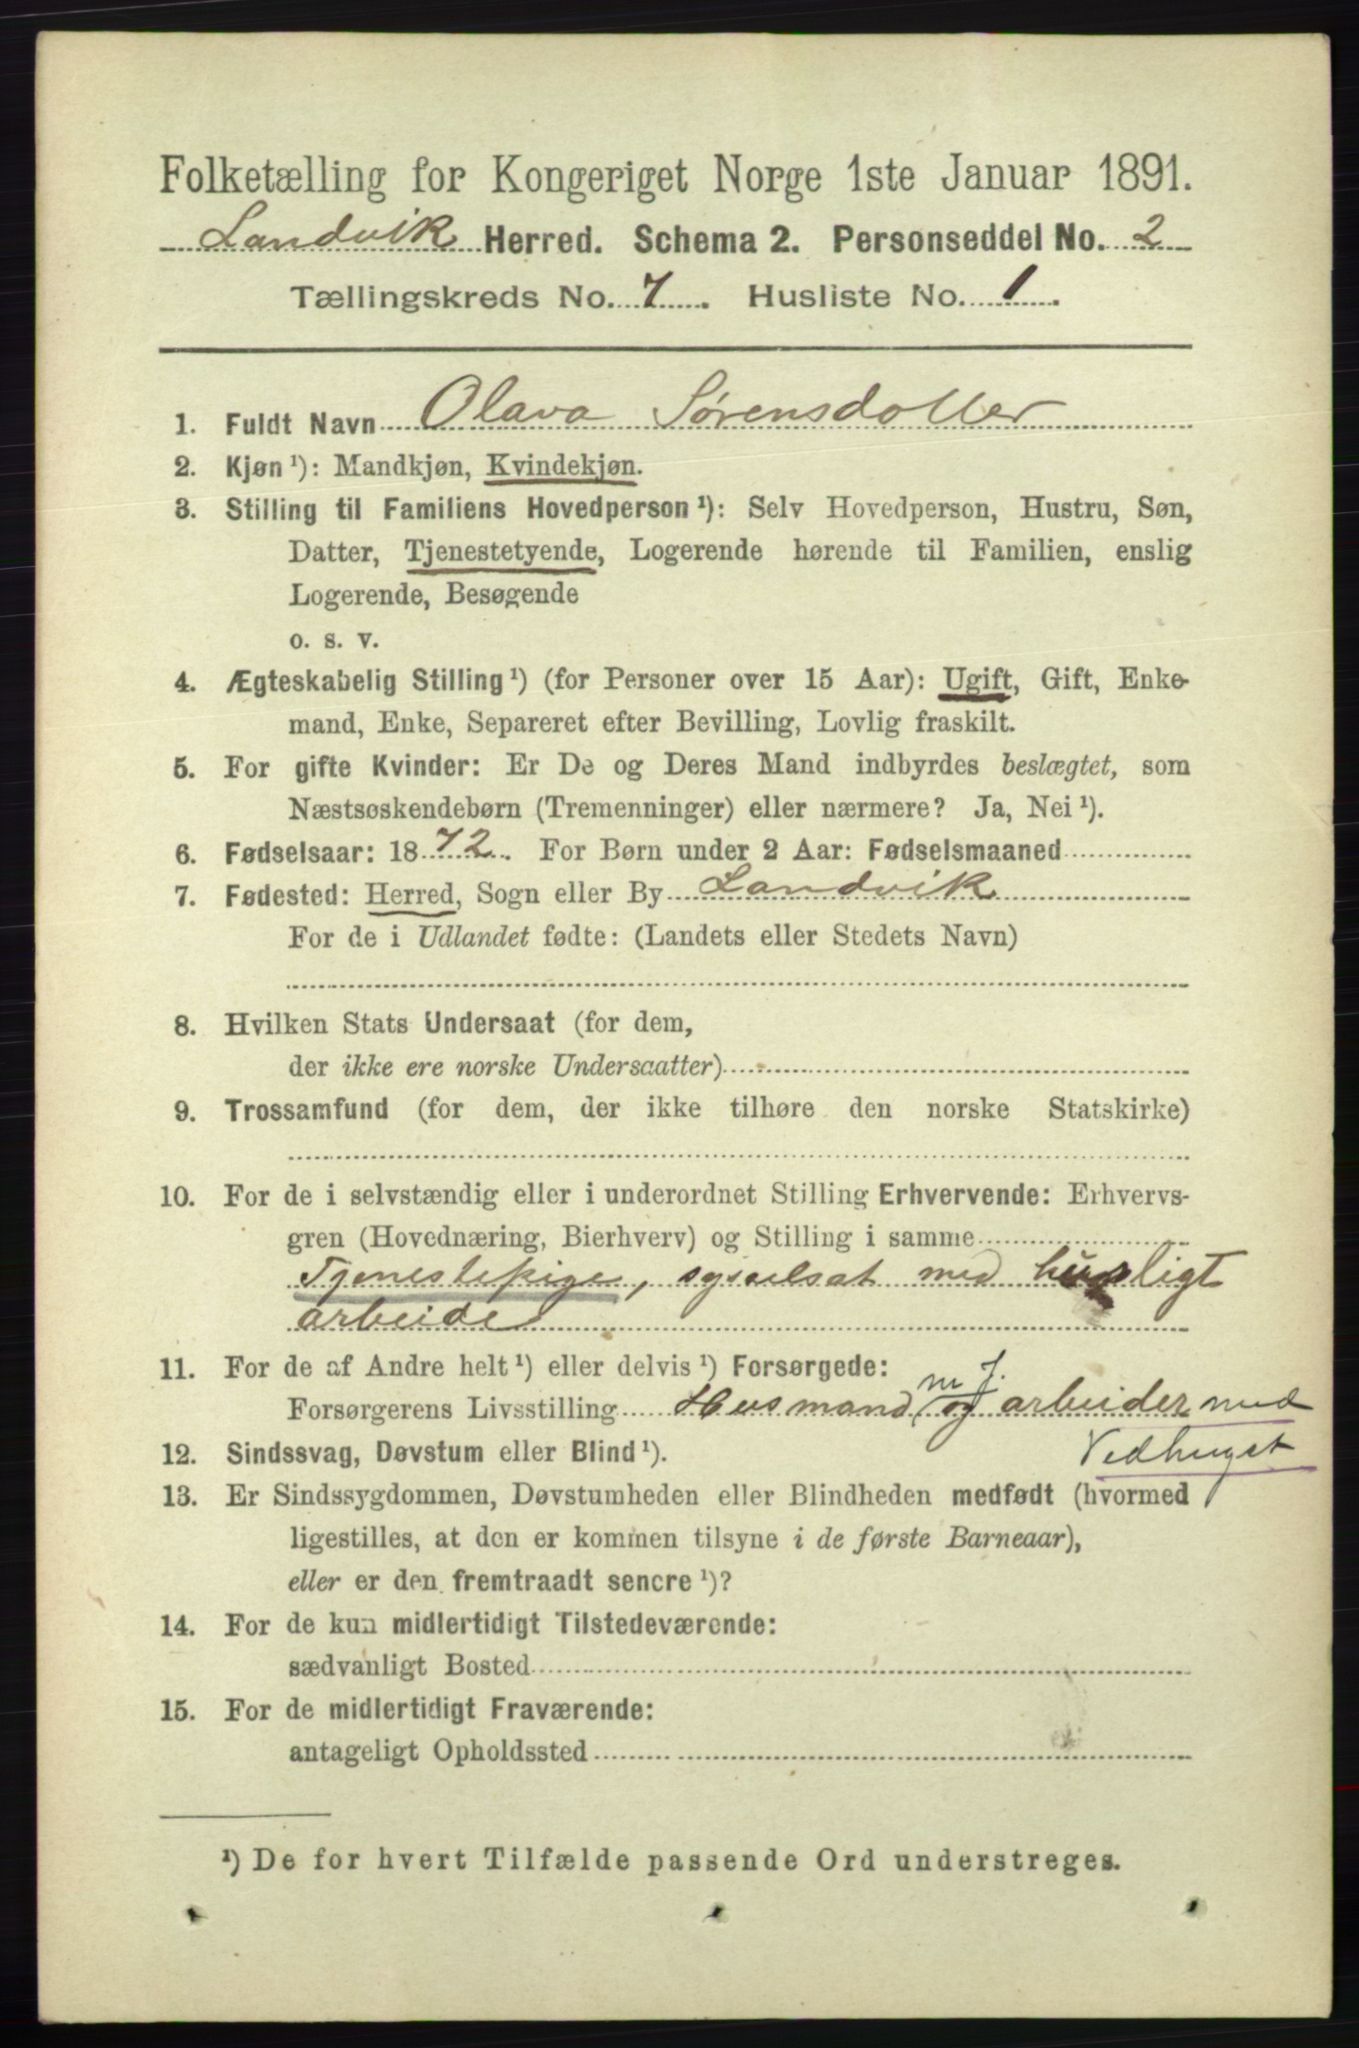 Folketælling for Kongeriget Norge 1ste Januar 1891.
Landvik Herred. Schema 2. Personseddel No. 2
Tællingskreds No. 7. Husliste No. 1.
1. Fuldt Navn Olava Sørensdotter
2. Kjøn¹): Mandkjøn, Kvindekjøn.
3. Stilling til Familiens Hovedperson¹): Selv Hovedperson, Hustru, Søn,
Datter, Tjenestetyende, Logerende hørende til Familien, enslig
Logerende, Besøgende
o. s. v.
4. Ægteskabelig Stilling¹) (for Personer over 15 Aar): Ugift, Gift, Enke-
mand, Enke, Separeret efter Bevilling, Lovlig fraskilt.
5. For gifte Kvinder: Er De og Deres Mand indbyrdes beslægtet, som
Næstsøskendebørn (Tremenninger) eller nærmere? Ja, Nei¹).
6. Fødselsaar: 1872. For Børn under 2 Aar: Fødselsmaaned
7. Fødested: Herred, Sogn eller By Landvik
For de i Udlandet fødte: (Landets eller Stedets Navn)
8. Hvilken Stats Undersaat (for dem,
der ikke ere norske Undersaatter)
9. Trossamfund (for dem, der ikke tilhøre den norske Statskirke)
10. For de i selvstændig eller i underordnet Stilling Erhvervende: Erhvervs-
gren (Hovednæring, Bierhverv) og Stilling i samme
Tjenestepige, sysselsat med husligt
arbeide
11. For de af Andre helt¹) eller delvis¹) Forsørgede:
m J.
Forsørgerens Livsstilling Husmand og arbeider med
Vedhuget
12. Sindssvag, Døvstum eller Blind¹).
13. Er Sindssygdommen, Døvstumheden eller Blindheden medfødt (hvormed
ligestilles, at den er kommen tilsyne i de første Barneaar),
eller er den fremtraadt senere¹)?
14. For de kun midlertidigt Tilstedeværende:
sædvanligt Bosted
15. For de midlertidigt Fraværende:
antageligt Opholdssted
¹) De for hvert Tilfælde passende Ord understreges.